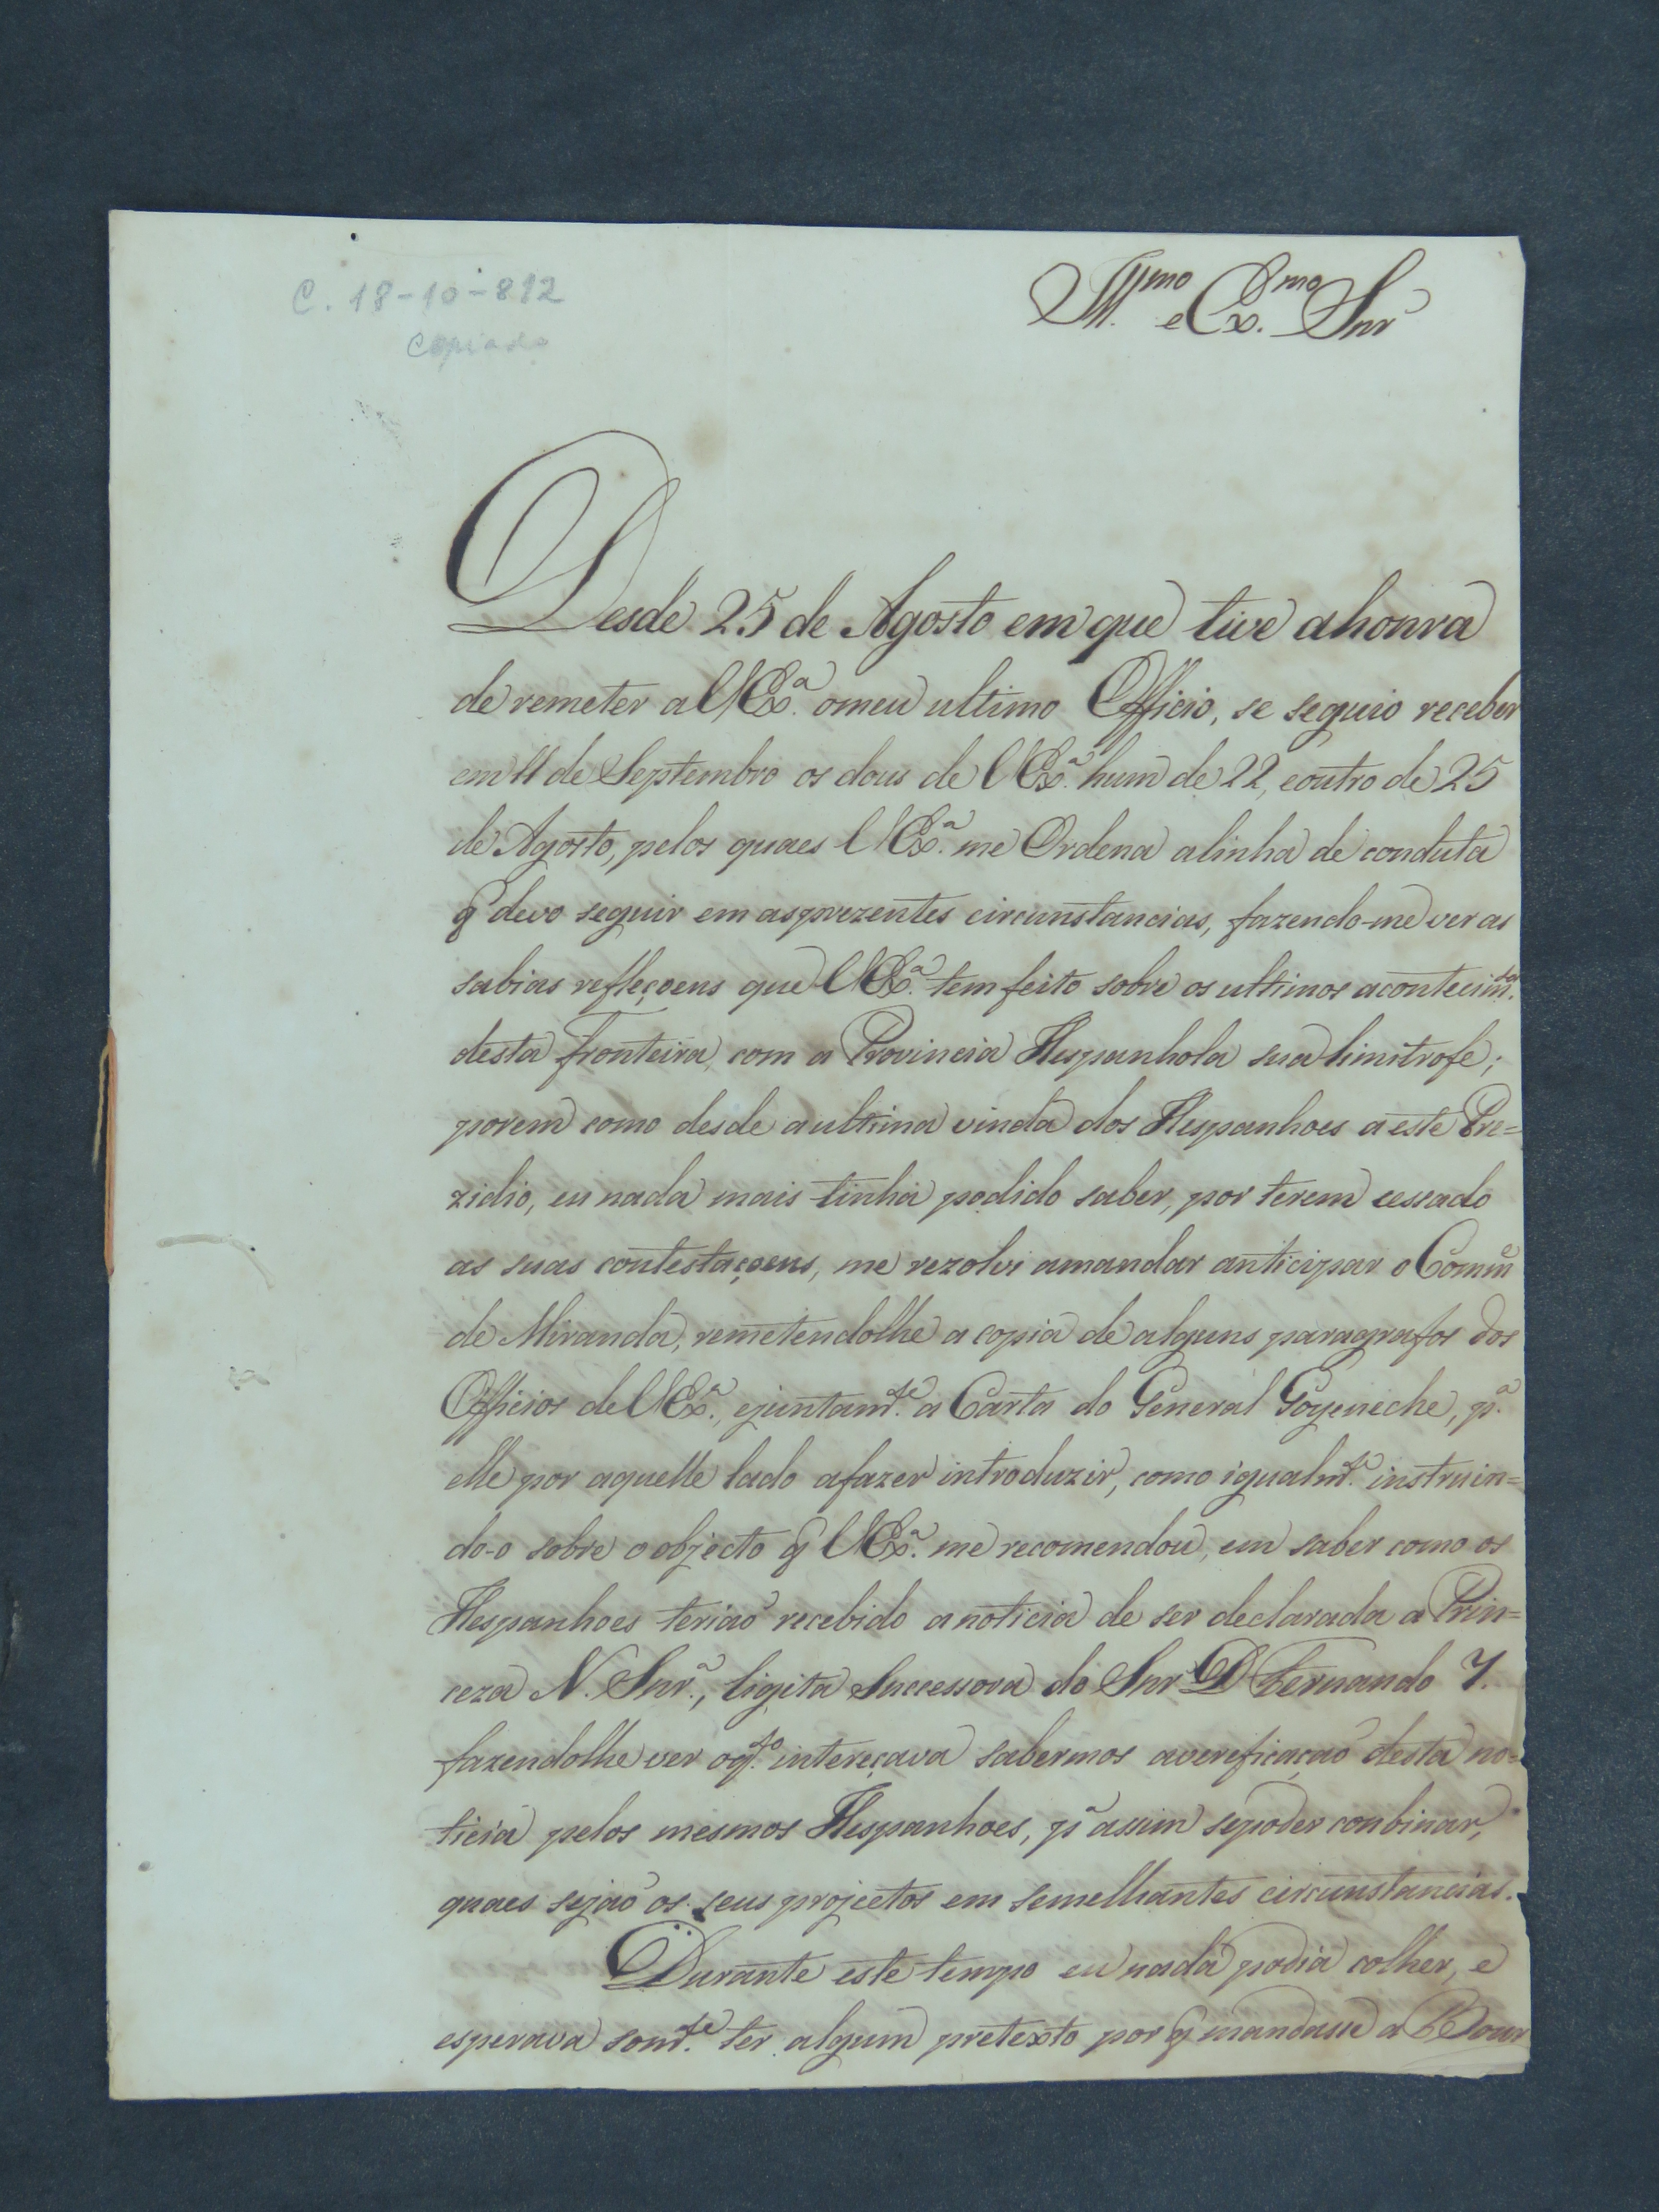 C. 18-10-812
Copiado
Ill.mo e Ex.mo Snr
Desde 25 de Agosto em que tive ahonra
de remeter a VEx.a omeu ultimo Officio, se seguio receber
em 11 de Septembro os dous de VEx.a hum de 22, eoutro de 25
de Agosto, pelos quaes VEx.a me Ordena alinha de conduta
q' devo seguir em asprezentes circunstancias, fazendo-me ver as
sabias refleçoens que VEx.a tem feito sobre os ultimos acontecim.tos
desta Fronteira, com a Provincia Hespanhola sua limitrofe;
porem como desde aultima vinda dos Hespanhoes a este Pre=
zidio, eu nada mais tinha podido saber, por terem cessado
as suas contestaçoens, me rezolvi amandar anticipar o Comm.e
de Miranda, remetendolhe a copia de alguns paragrafos dos
Officios de VEx.a, ejuntam.te a Carta do General Goyeneche, p.a
elle por aquelle lado afazer introduzir, como igualm.te instruin=
do-o sobre o objecto q' VEx.a me recomendou, em saber como os
Hespanhoes teriaõ recebido anoticia de ser declarada a Prin=
ceza N. Snr.a, ligita Successora do Snr D Fernando 7.
fazendolhe ver oq.to intereçava sabermos averificaçaõ desta no=
ticia pelos mesmos Hespanhoes, p.a assim sepoder conbinar,
quaes sejaõ os seus projectos em semelhantes circunstancias.
Durante este tempo eu nada podia colher, e
esperava som.te ter algum pretexto por q' mandasse a Bour